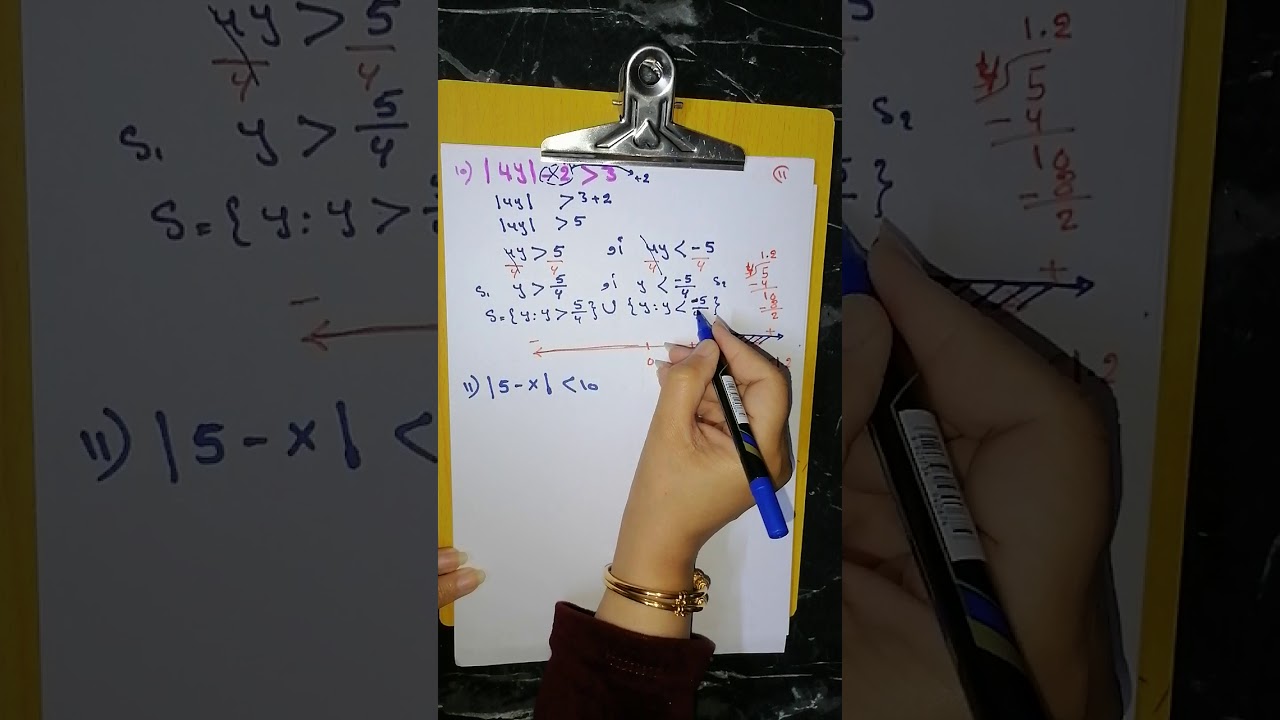 10) |4y| -2 > 3 +2
11
|4y| > 3+2
|4y| > 5
4y/4 > 5/4 أو 4y/4 < -5/4
S₁ y > 5/4 أو y < -5/4 S₂
S={y:y > 5/4} ∪ {y:y < -5/4}
1.2
4 5
-4
10
-8
2
- +
0
11) |5-x| < 10